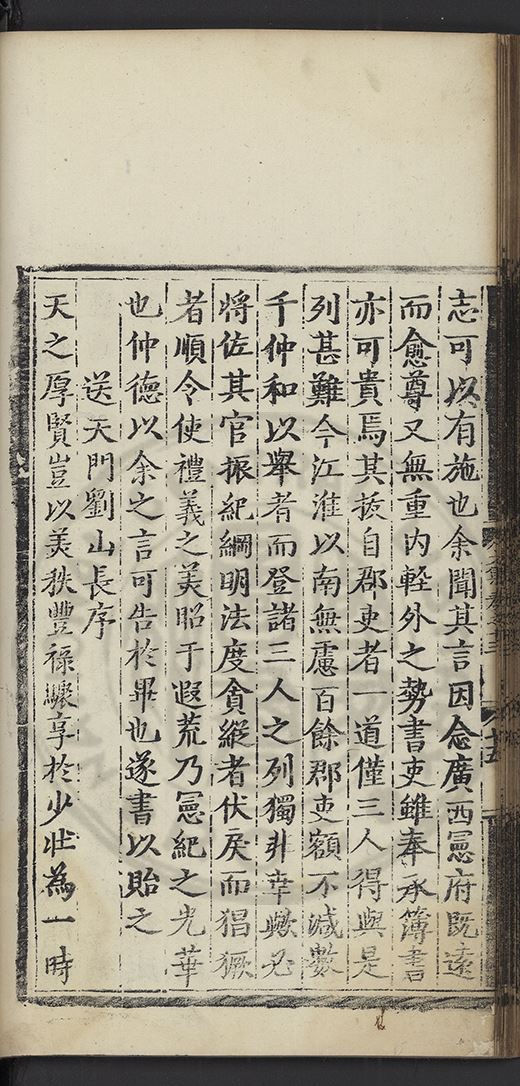 志可以有施也余聞其言因念廣西憲府既遠
而愈尊又無重内輕外之勢書吏雖奉承簿書
亦可貴焉其拔自郡吏者一道僅三人得與是
列甚難今江淮以南無慮百餘郡吏額不減數
千仲和以舉者而登諸三人之列獨非幸歟必
將佐其官振紀綱明法度貪縱者伏戾而猖獗
者順令使禮義之美昭于遐荒乃憲紀之光華
也仲德以余之言可告於畢也遂書以貽之
送天門劉山長序
天之厚賢豈以美秩豐祿驟享於少壯為一時